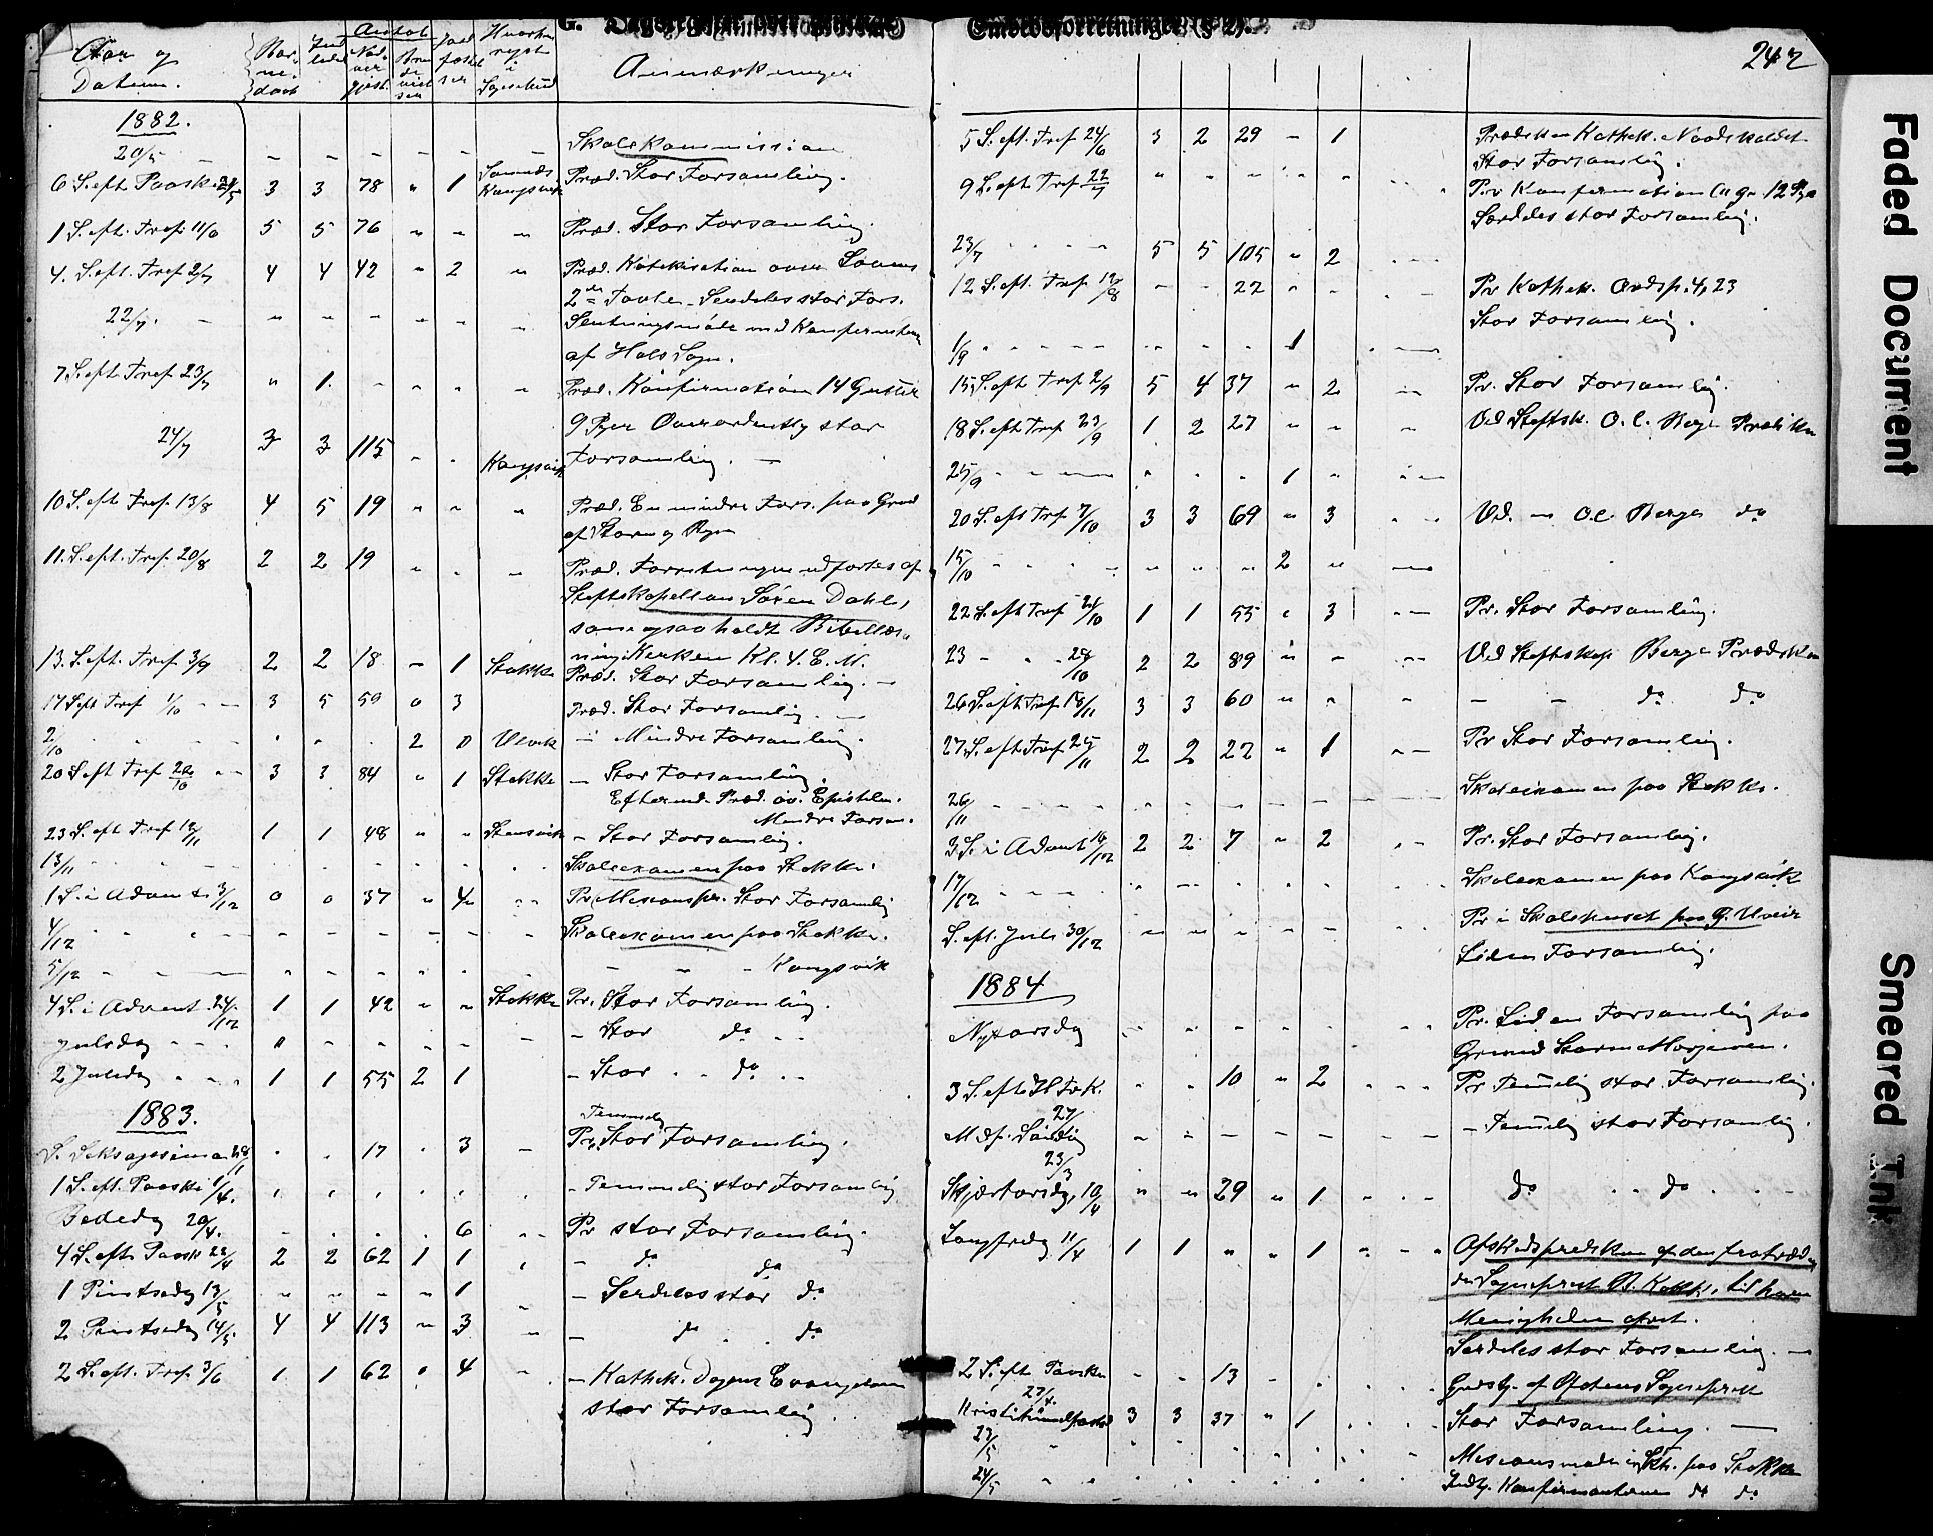 G. Dagsregister over
Embedsforretninger (§ 2).
242
Aar og Datum. Bar-ne-daab Ind-ledet Antal Nad-ver gjest. Bru-de-viel-ser Jord-fæst-elser Hvorhen reist i Sognebud Anmærkninger
1882.
20/5 - - - - - - - Skolekommission
6 S. eft. Paaske 21/5 3 3 78 " 1 Kongsvik Præd. Stor Forsamling.
1 S. eft. Tref. 11/6 5 5 76 " - " Præd. Stor Forsamling.
4. S. eft. Tref 2/7 4 4 42 " 2 " Præd. Katekisation over Lovens
2den Tavle - Serdeles stor Fors.
22/7. - " - " - - " Slutningsmöde med Konfirmanterne
af Hols Sogn.
7 S. eft Tref 23/7 " 1 - - - " Præd. Konfirmation 14 Gutter
9 Pger Overordentlig stor
24/7 3 3 115 - - Kongsvik Forsamling. -
10 S. eft Tref. 13/8 4 5 19 " " " Præd. En mindre Fors. paa Grund
af Storm og Regn
11. S. eft. Tref. 20/8 2 2 19 " . " Præd. Forretningen udførtes af
Stiftskapellan Søren Dahl,
som ogsaa holdt Bibellæs-
ning i Kirken Kl. 4 E. M.
13. S. eft. Tref 3/9 2 2 18 - 1 Stokke Præd. Stor Forsamling. -
17 S eft Tref 1/10 - - 3 5 59 0 3 Præd. Stor Forsamling. -
2/10 . . . 2 0 Ulvik - Mindre Forsamling.
20 S eft Tref 22/10 - - 3 3 84 " 1 Stokke - Stor Forsamling.
Eftermd. Præd. ov. Epistelen.
Mindre Forsam.
23 S. eft Tref 12/11 1 1 48 " " Stensvik - Stor Forsamling.
13/11 - - - - - - - Skoleexamen paa Stokke.
1 S. i Advent 3/12 0 0 37 " 4 - - Pr. Missionspr. Stor Forsamlig
4/12 - - - - - - - Skoleexamen paa Stokke.
5/12 - - - - - - - - - - Kongsvik
4 S. i Advent 24/12 1 1 42 " " Stokke Pr. Stor Forsamling.
Juledag - - - 0 - - - - - - Stor do - -
2 Juledag - - - 1 1 55 2 1 - Stor - - do - -
1883.
S. Seksagesima 28/1 . . 17 . 3 - Pr. Temmelig Stor Forsamling.
1 S. eft. Paaske 1/4. . . . . . - Temmelig stor Forsamlig
Bededag 20/4. - . . . 6 . . Pr stor Forsamling.
4 S. eft Paask 22/4 2 2 62 1 1 . - do do
1 Pintsedag 13/5 " " " " 1 " - Serdeles stor do
2 Pintsedag 14/5. 4 4 113 " 3 " - do . do
2 S. eft. Tref. 3/6 1 1 62 " 4 " - Kathek. Dagens Evangelium
stor Forsamling.
5 S. eft. Tref 24/6 3 2 29 - 1 Prædiken Kathek. Naadevalget
Stor Forsamling.
9 S. eft Tref 22/7 " " " " " " Pr Konfirmation 12 Pger
Særdeles stor Forsamling.
23/7 - - - - 5 5 105 " 2 . --
12 S. eft. Tref 12/8 - - 22 " " . - Pr Kathek. Ordsp. 4, 23
Stor Forsamling.
1/9 - - - - - - - - 1 . --
15 S. eft Tref 2/9 5 4 37 " 2 -- Pr. Stor Forsamlig.
18 S. eft Tref 23/9 1 2 27 " " " Ved Stiftsk. O. C. Berge Prædiken
25/9 - - - - " - - 1 " --
20 S. eft Tref 7/10 3 3 69 " 3 - - Vd. - O.C. Berge do
15/10 - - - - " " " 2 " --
22 S. eft Tref 21/10 1 1 55 " 3 -- Pr. Stor Forsamling.
23 - - - 28/10 2 2 89 " - -- Ved Stiftskap Berge Prædiken
26 S. eft Tref 18/11 3 3 60 " " " - - do do
27 S. eft Tref 25/11 2 2 22 " 1 -- Pr Stor Forsamling.
26/11 - - - - - - - - - - Skoleexamen paa Stokke.
3 S. i Advent 16/12 2 2 7 " 2 -- Pr. Stor Forsamlig.
17/12 - - - - - - - - - - Skoleexamen paa Kongsvik
S. eft. Jul 30/12 - - - - - - - Pr i Skolehuset paa G. Uveir
Liden Forsamling.
1884
Nytaarsdag - - - - - -- Pr. Liden Forsamling paa
Grund Storm
3 S. eft H 3 K. 27/ . . 10 " 2 - - - Pr Temmelig stor Forsamling.
M. F. Söndag 23/3 - - - - - - - - Temmelig stor Forsamlig.
Skjærtorsdag 10/4 " " 29 " 1 - - - do - - do - -
Langfredag 11/4 1 1 " " 1 " - " Afskedspræken af den fratræd-
den Sognepræst B. Kokk, til haren
Menigheden
Serdeles stor Forsamling. -
2 S. eft Paaske 27/4. - - 13 - . . Gudstj. af Ofotens Sognepræst
Kristi himmelfartsd 3 3 37 " 1 . . Stor Forsamling. -
23/5 - - - - - - - Missionsmøde paa Stokke
24/5 - - - - - - - Indtg. Konfirmanterne dt do
Faded Document
Smeared Ink